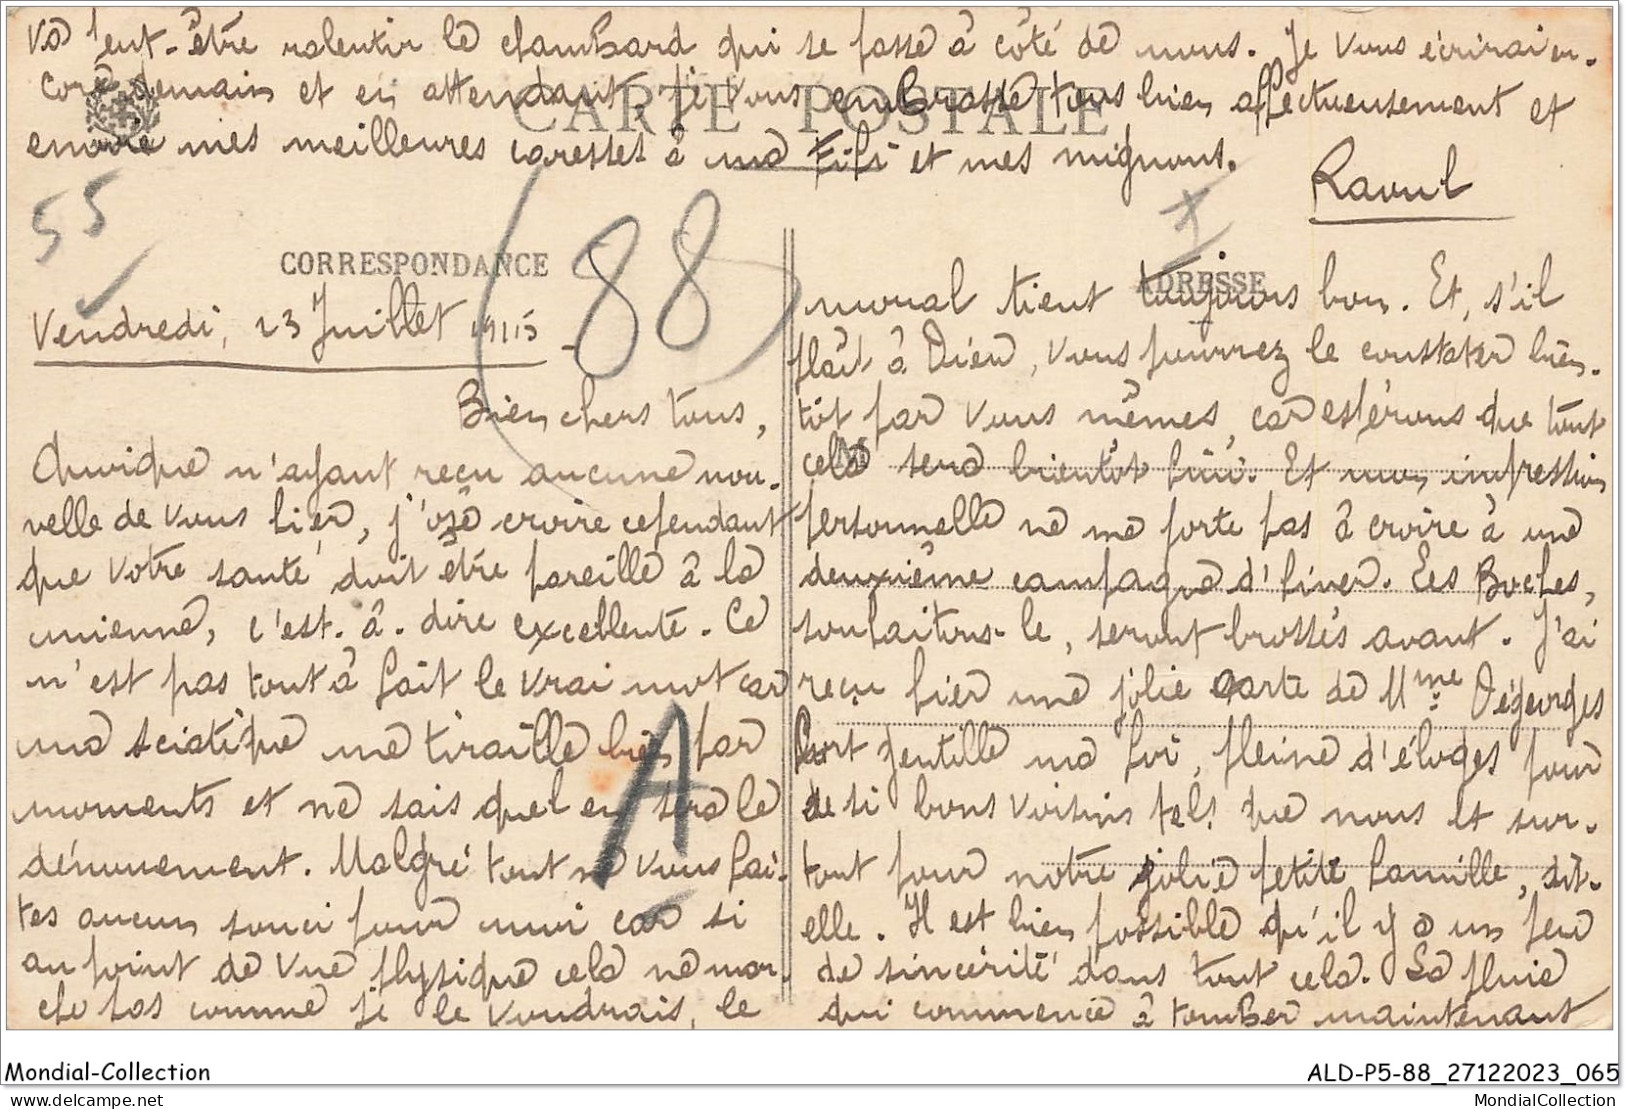 CARTE POSTALE
CORRESPONDANCE
ADRESSE
55
88
A
Vendredi, 23 Juillet 1915
Bien chers tous,
Quoique n'ayant reçu aucune nou-
velle de vous hier, j'ose croire cependant
que votre santé doit être pareille à la
mienne, c'est-à-dire excellente. Ce
n'est pas tout à fait le vrai mot car
ma sciatique me tiraille bien par
moments et ne sais quel en sera le
dénouement. Malgré tout ne vous fai-
tes aucun souci pour moi car si
au point de vue physique cela ne mar-
che pas comme je le voudrais, le
moral tient toujours bon. Et, s'il
plait à Dieu, vous pourrez le constater bien-
tôt par vous mêmes, car espérons que tout
cela sera bientôt fini. Et mon impression
personnelle ne me porte pas à croire à une
deuxième campagne d'hiver. Les Boches,
souhaitons-le, seront brossés avant. J'ai
reçu hier une jolie carte de Mme Dégeorges
fort gentille ma foi, pleine d'éloges pour
de si bons voisins tels que nous et sur-
tout pour notre jolie petite famille, dit-
elle. Il est bien possible qu'il y a un peu
de sincérité dans tout cela. La pluie
qui commence à tomber maintenant
va peut-être ralentir le chambard qui se passe à côté de nous. Je vous écrirai en-
core demain et en attendant, je vous embrasse tous bien affectueusement et
envoie mes meilleures caresses à ma Fifi et mes mignons.
Raoul
Mondial-Collection
ALD-P5-88_27122023_065
delcampe.net
MondialCollection